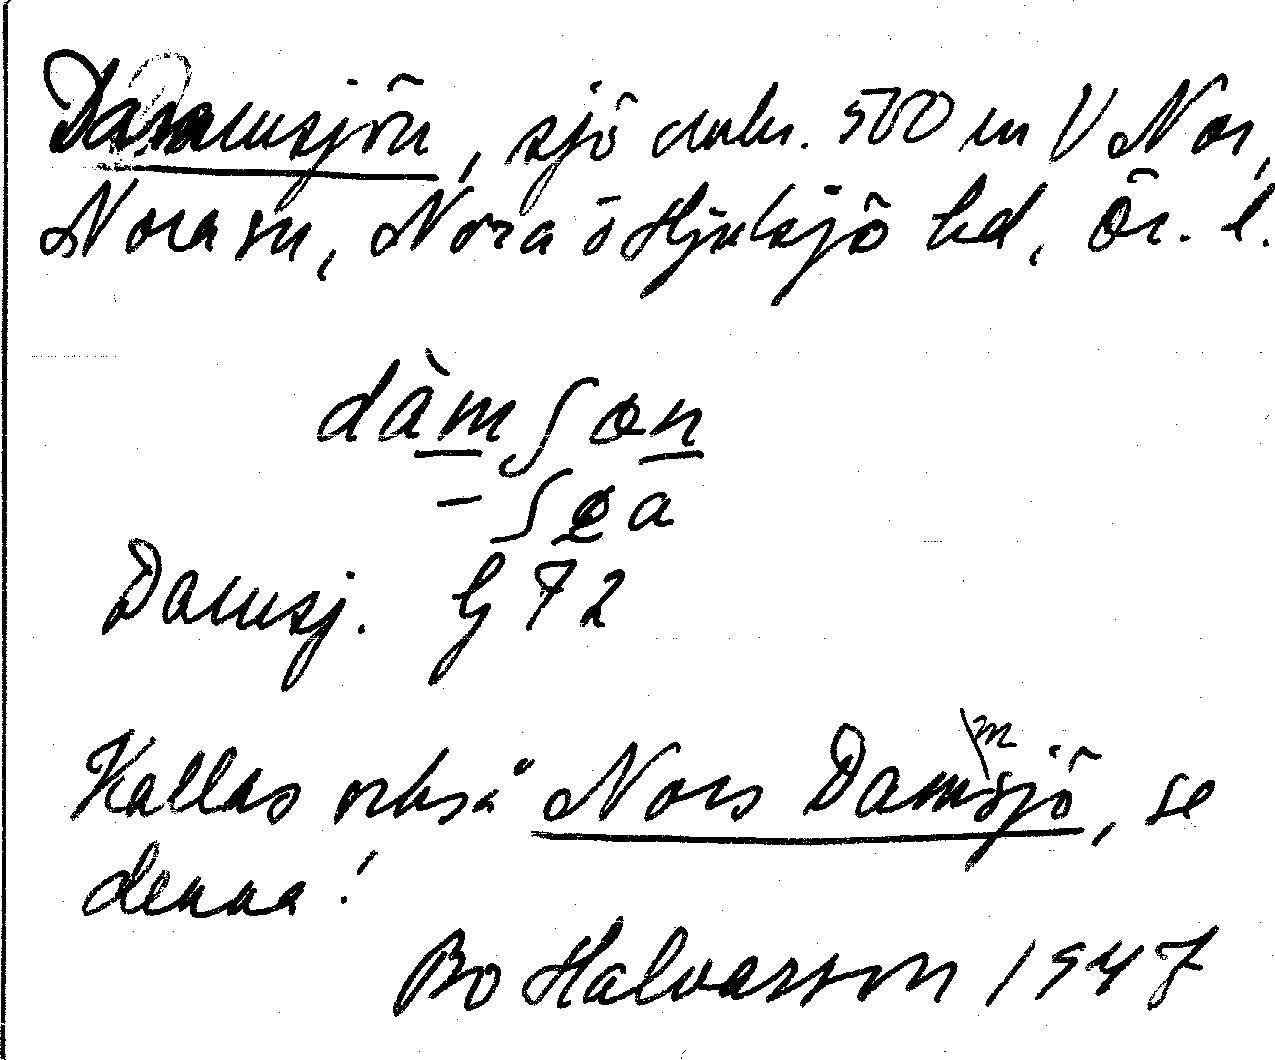 Damsjön, sjö omkr. 500 m V Nor,
Nora sn, Nora o Hjulsjö hd, Ör. l.
dàmʃøn
– ʃøa
Damsj. G 72
Kallas också Nors Dammsjö, se
denna!
Bo Halvarsson 1947